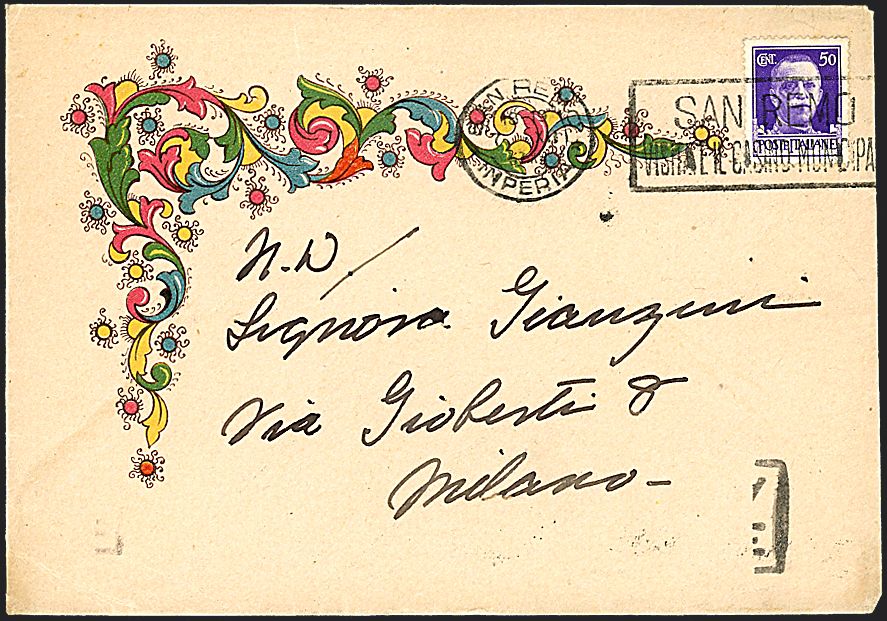 CENT. 50
POSTE ITALIANE
SAN REMO
IMPERIA
SAN REMO
VISITATE IL CASINO MUNICIPA
N.D
Signora Gianzini
Via Gioberti 8
Milano -